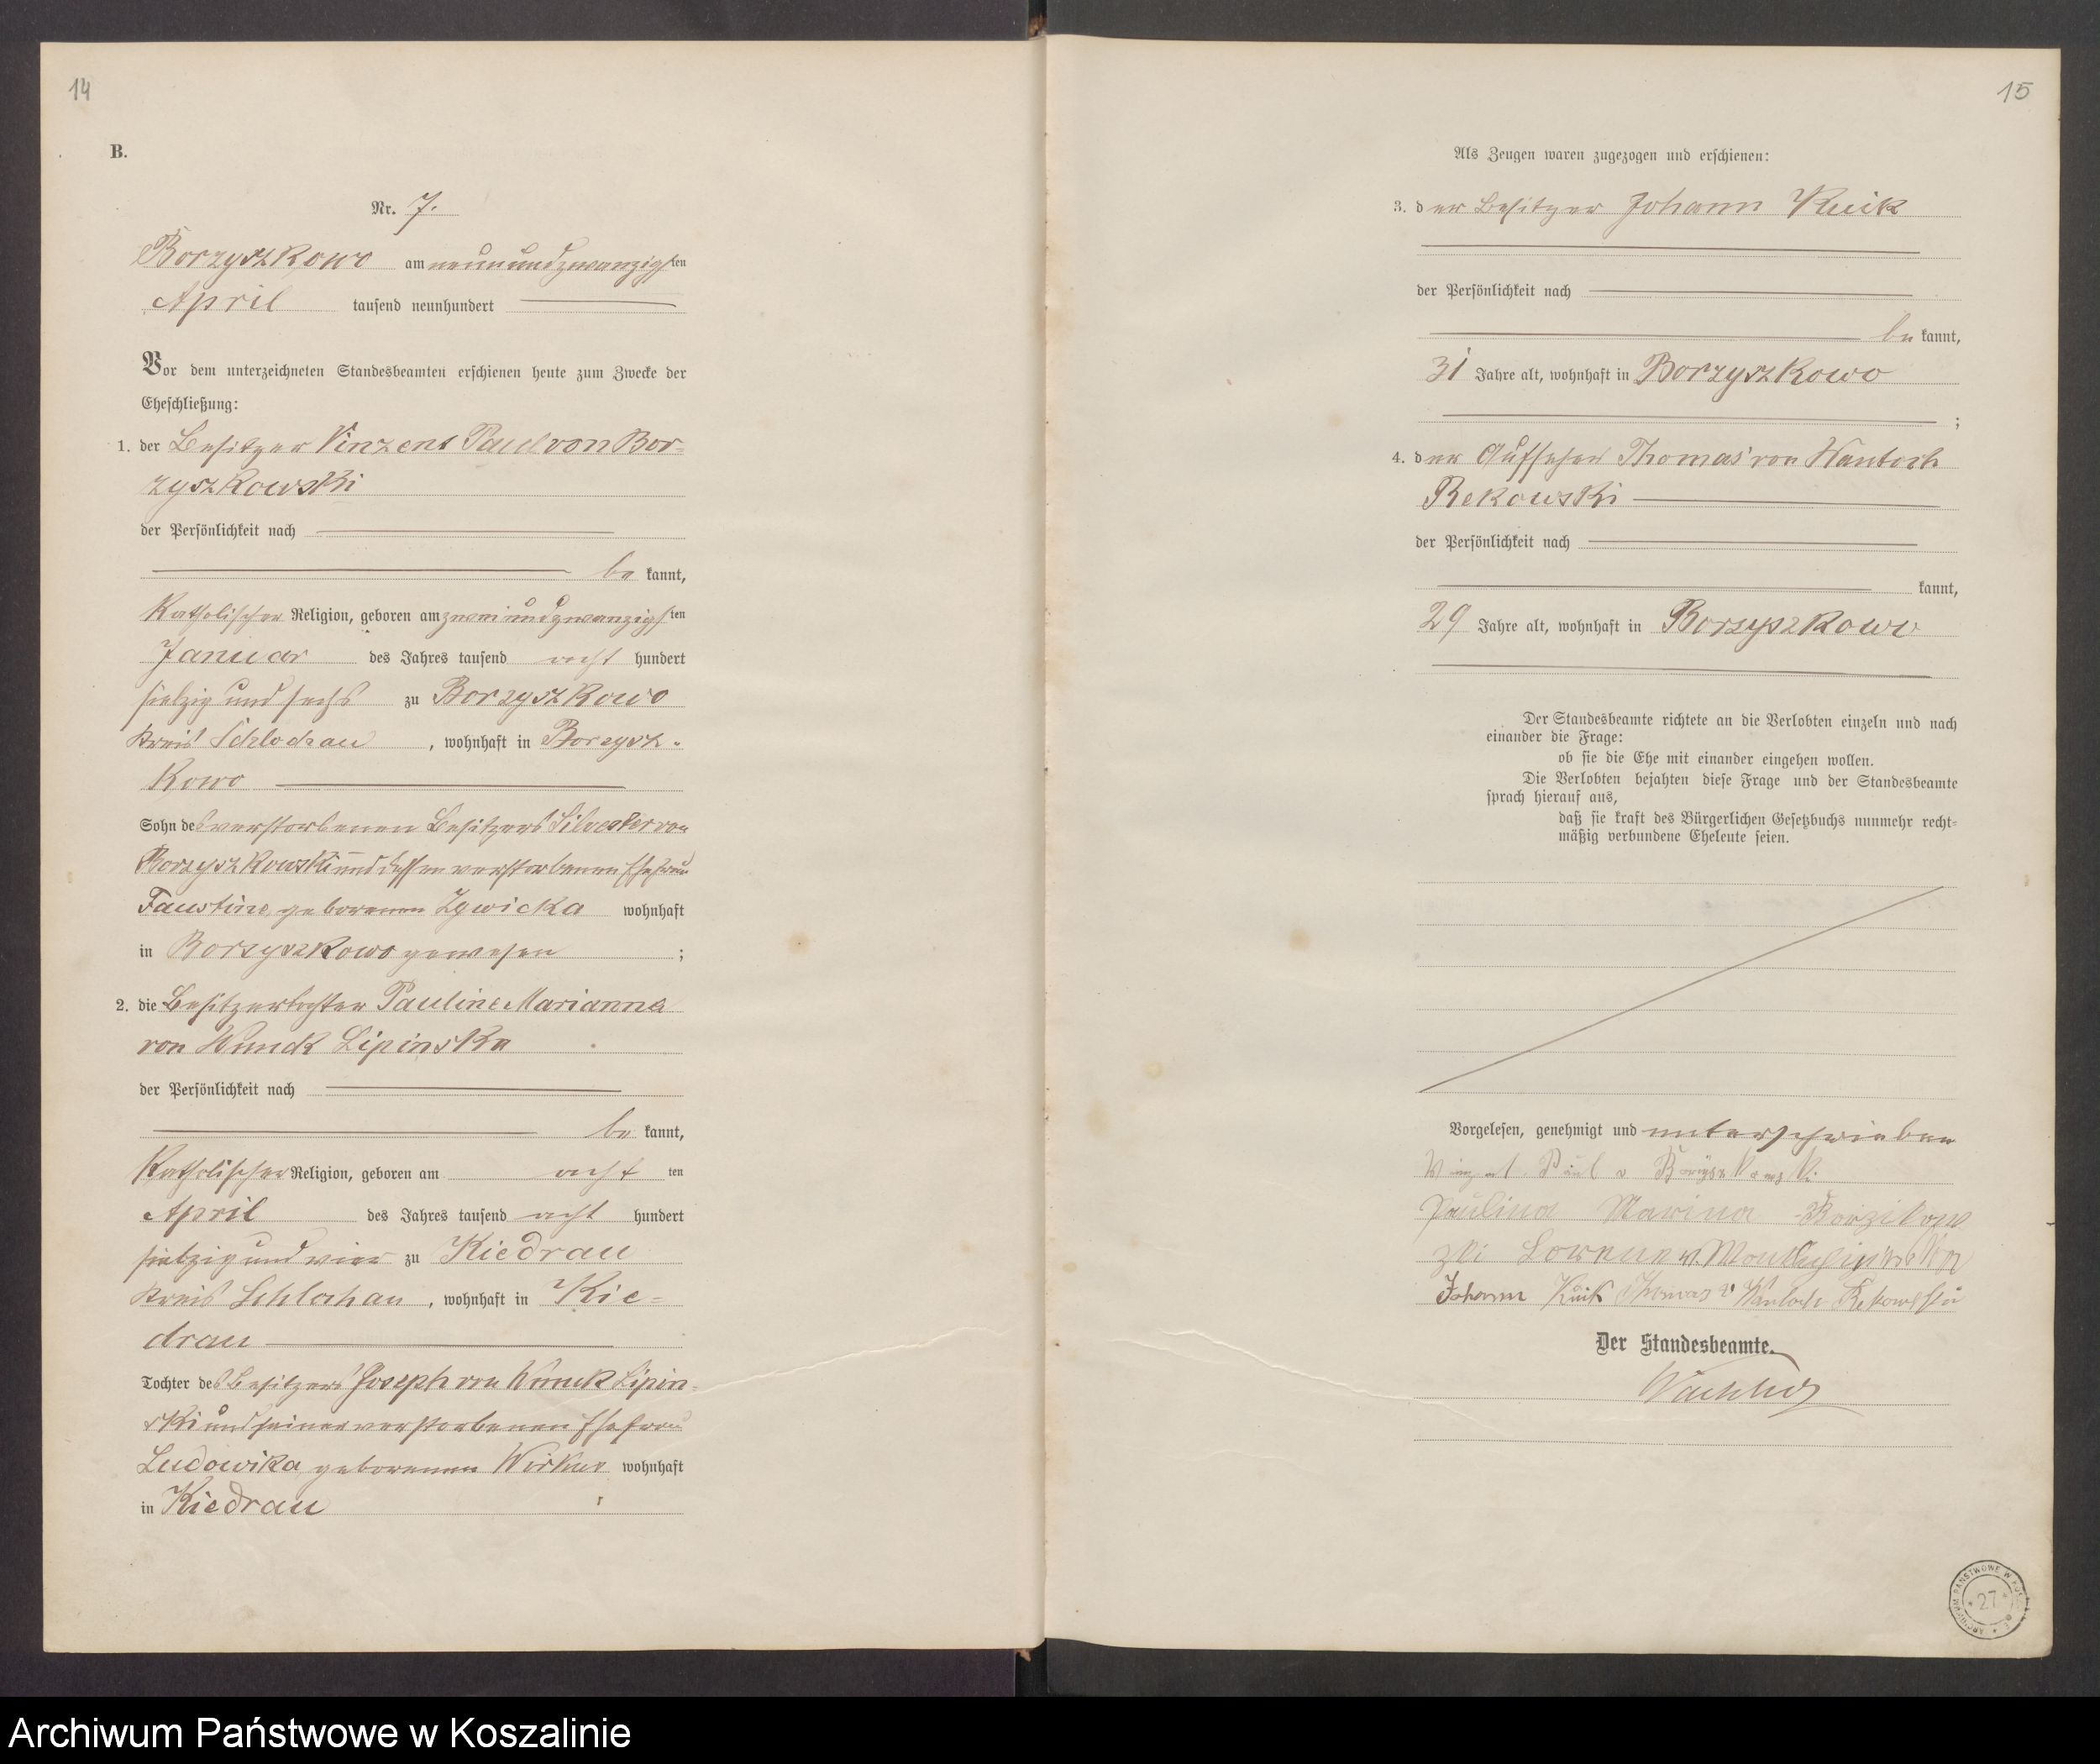 14
B.
Nr. 7.
Borzyszkowo am neunundzwanzigsten
April tausend neunhundert
Vor dem unterzeichneten Standesbeamten erschienen heute zum Zwecke der
Eheschließung:
1. der Besitzer Vinzent Paul von Bor-
zyszkowski
der Persönlichkeit nach
be kannt,
Katholischer Religion, geboren am zweiundzwanzigsten
Januar des Jahres tausend acht hundert
siebzig und sechs zu Borzyszkowo
Kreis Schlochau, wohnhaft in Borzysz-
kowo
Sohn des verstorbenen Besitzers Silvester von
Borzyszkowski und dessen verstorbenen Ehefrau
Faustine geborenen Zywicka wohnhaft
in Borzyszkowo gewesen ;
2. die Besitzertochter Pauline Marianna
von Wnuck Lipinska
der Persönlichkeit nach
be kannt,
Katholischer Religion, geboren am acht ten
April des Jahres tausend acht hundert
siebzig und vier zu Kiedrau
Kreis Schlochau, wohnhaft in Kie-
drau
Tochter des Besitzers Joseph von Wnuck Lipin-
ski und seiner verstorbenen Ehefrau
Ludowika geborenen Wirkus wohnhaft
in Kiedrau
15
Als Zeugen waren zugezogen und erschienen:
3. der Besitzer Johann Kuik
der Persönlichkeit nach
be kannt,
31 Jahre alt, wohnhaft in Borzyszkowo
;
4. der Aufseher Thomas von Wantoch
Rekowski
der Persönlichkeit nach
kannt,
29 Jahre alt, wohnhaft in Borzyszkowo
Der Standesbeamte richtete an die Verlobten einzeln und nach
einander die Frage:
ob sie die Ehe mit einander eingehen wollen.
Die Verlobten bejahten diese Frage und der Standesbeamte
sprach hierauf aus,
daß sie kraft des Bürgerlichen Gesetzbuchs nunmehr recht-
mäßig verbundene Eheleute seien.
Vorgelesen, genehmigt und unterschrieben
Vinzent Paul v Borzyszkowski
Paulina Marina Borzikow
zki
Johann Kuik Thomas v Wantoch Rekowski
Der Standesbeamte.
ARCHIWUM PAŃSTWOWE W
27
Archiwum Państwowe w Koszalinie